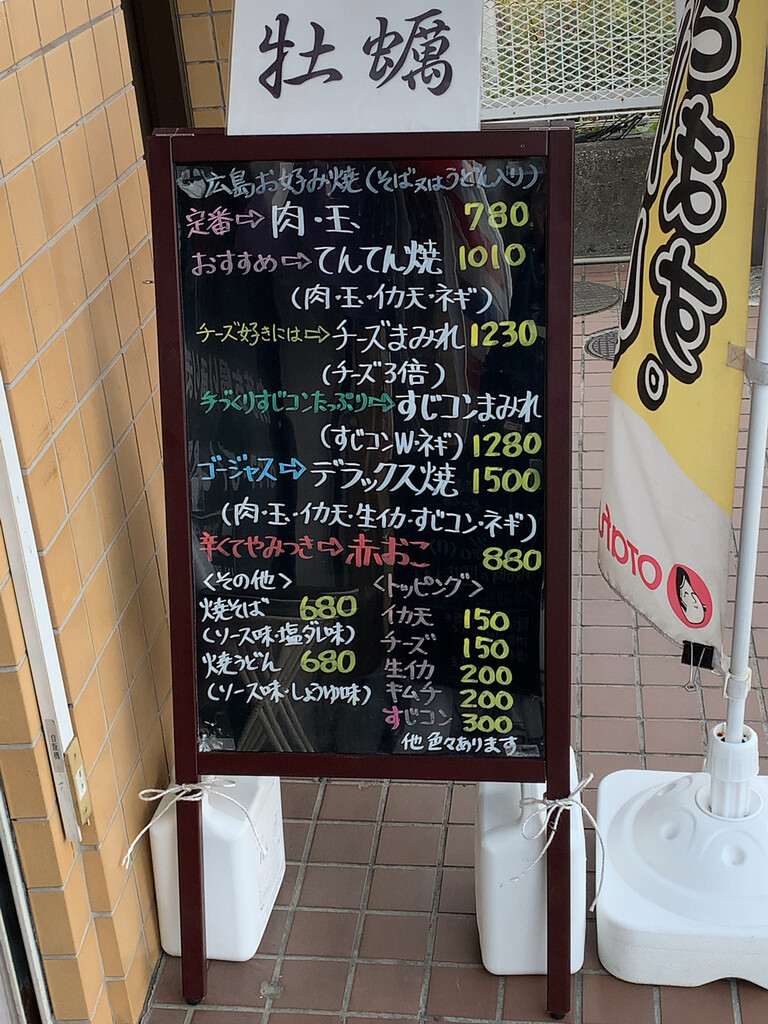 牡蠣
広島お好み焼(そば又はうどん入り)
定番⇨肉・玉 780
おすすめ⇨てんてん焼 1010
(肉・玉・イカ天・ネギ)
チーズ好きには⇨チーズまみれ 1230
(チーズ3倍)
手づくりすじコンたっぷり⇨すじコンまみれ
(すじコンW・ネギ) 1280
ゴージャス⇨デラックス焼 1500
(肉・玉・イカ天・生イカ・すじコン・ネギ)
辛くてやみつき⇨赤おこ 880
<その他>
焼そば 680
(ソース味・塩ダレ味)
焼うどん 680
(ソース味・しょうゆ味)
<トッピング>
イカ天 150
チーズ 150
生イカ 200
キムチ 200
すじコン 300
他色々あります
ります。
OTAFU